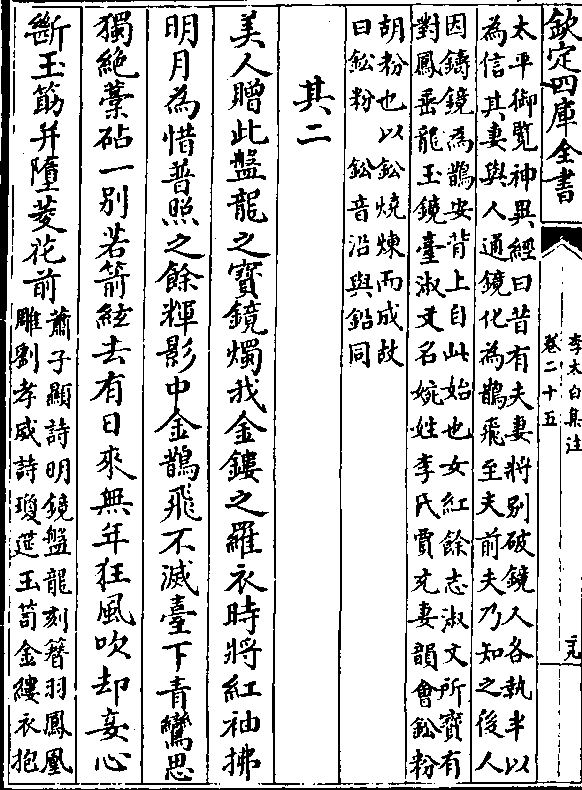 欽定四庫全書
李太白集注
卷二十五
太平御覧神異經曰昔有夫妻將别破鏡人各執半以
為信其妻與人通鏡化為鵲飛至夫前夫乃知之後人
因鑄鏡為鵲安背上自此始也女紅餘志淑文所寶有
對鳳垂龍玉鏡臺淑文名婉姓李氏賈充妻韻會鈆粉
胡粉也以鈆燒煉而成故
曰鈆粉　鈆音沿與鉛同
其二
美人贈此盤龍之寶鏡燭我金鏤之羅衣時將紅袖拂
明月為惜普照之餘輝影中金鵲飛不滅臺下青鸞思
獨絶藁砧一别若箭弦去有日來無年狂風吹却妾心
斷玉筯并墮菱花前
蕭子顯詩明鏡盤龍刻簪羽鳳凰
雕劉孝威詩瓊筵玉笥金縷衣抱